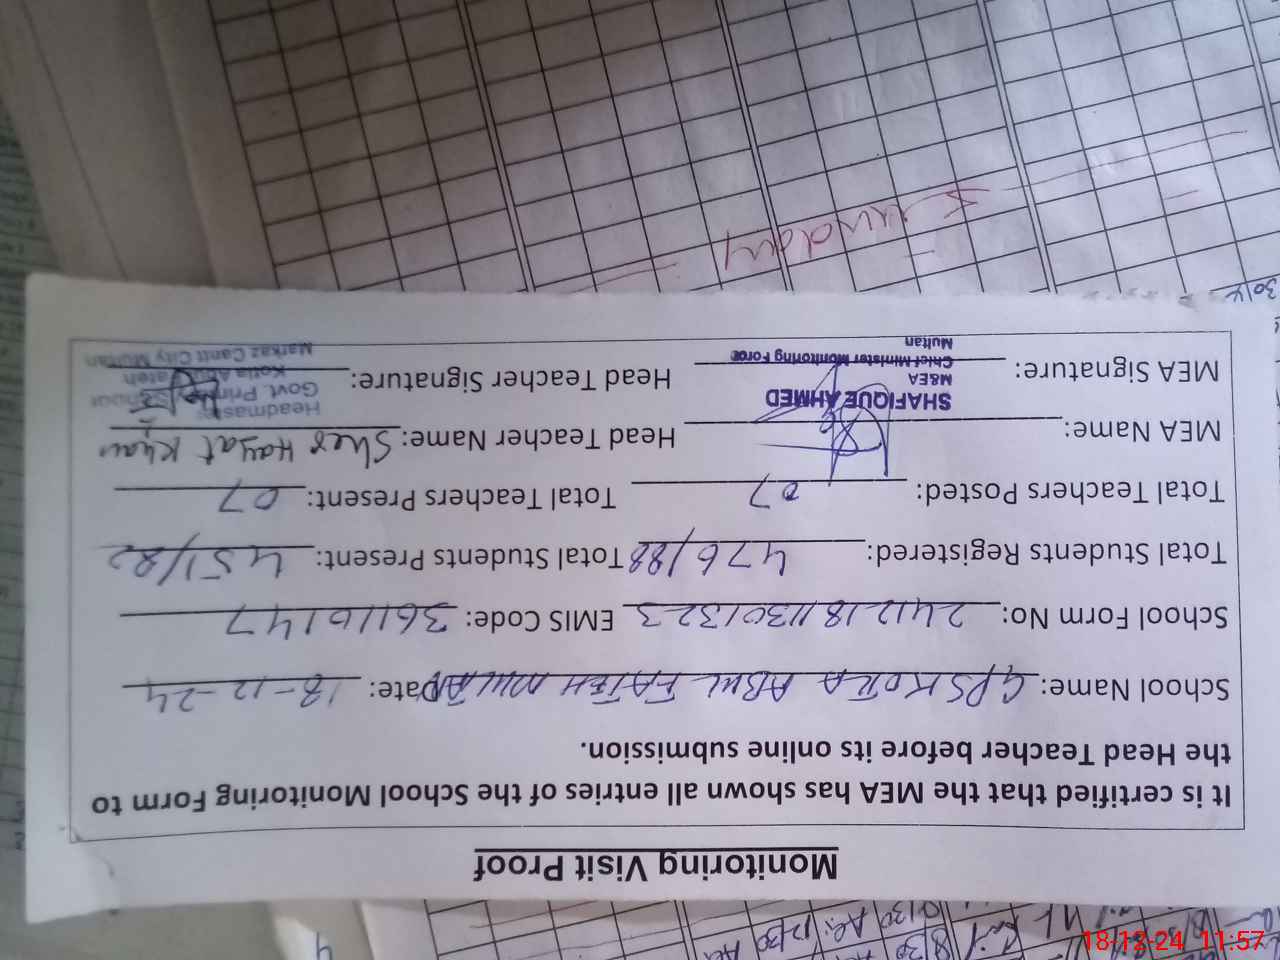 Monitoring Visit Proof
It is certified that the MEA has shown all entries of the School Monitoring Form to
the Head Teacher before its online submission.
School Name: GPS KOTLA ABUL FATEH MULTAN Date: 18-12-24
School Form No: 24121811301323 EMIS Code: 36110147
Total Students Registered: 476/88 Total Students Present: 451/82
Total Teachers Posted: 07 Total Teachers Present: 07
MEA Name: Head Teacher Name: Sher Hayat Khan
SHAFIQUE AHMED
M&EA
Chief Minister Monitoring Force
Multan
MEA Signature: Head Teacher Signature:
Headmaster
Govt. Primary School
Kotla Abul Fateh
Markaz Cantt City Multan
Sunday
18-12-24 11:57